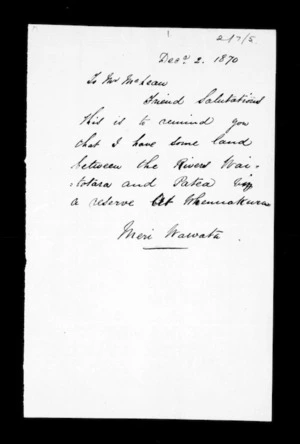 217/5
Decr 2. 1870
To Mr McLean
Friend Salutations
This is to remind you
that I have some land
between the Rivers Wai-
-totara and Patea
a reserve at Whenuakura
Meri Wawatu